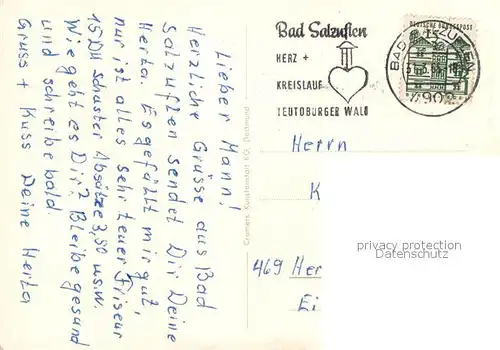 Lieber Mann!
Herzliche Grüsse aus Bad
Salzuflen sendet Dir Deine
Herta. Es gefällt mir gut,
nur ist alles sehr teuer Friseur
15 DM Schuster Absätze 3,80 u.s.w.
Wie geht es Dir? Bleibe gesund
und schreibe bald.
Gruss + Kuss Deine Herta
Cramers Kunstanstalt KG, Dortmund
Bad Salzuflen
HERZ +
KREISLAUF
TEUTOBURGER WALD
DEUTSCHE BUNDESPOST
BAD SALZUFLEN
4902
Herrn
K
469 Her
Ei
privacy protection
Datenschutz